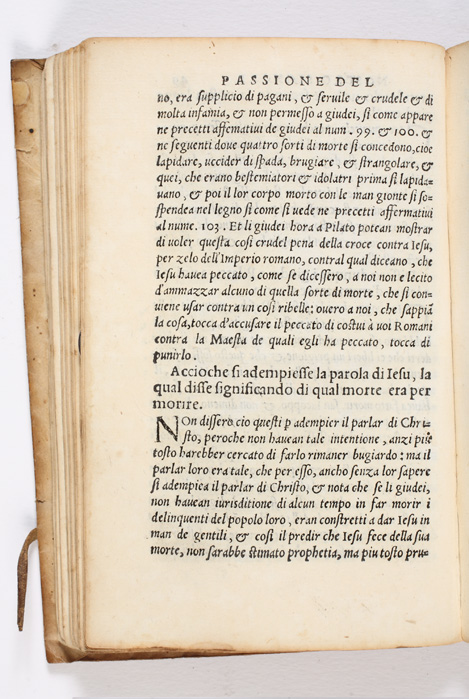 PASSIONE DEL
no, era supplicio di pagani, & seruile & crudele & di
molta infamia, & non permesso a giudei, si come appare
ne precetti affermatiui de giudei al num. 99. & 100. &
ne seguenti doue quattro sorti di morte si concedono, cioe
lapidare, uccider di spada, brugiare, & strangolare, &
quei, che erano bestemiatori & idolatri prima si lapida-
uano, & poi il lor corpo morto con le man gionte si so-
spendea nel legno si come si uede ne precetti affermatiui
al nume. 103. Et li giudei hora a Pilato potean mostrar
di uoler questa cosi crudel pena della croce contra Iesu,
per zelo dell'Imperio romano, contra l qual diceano, che
Iesu hauea peccato, come se dicessero, a noi non e lecito
d'ammazzar alcuno di quella sorte di morte, che si con-
uiene usar contra un cosi ribelle: ouero a noi, che sappiã
la cosa, tocca d'accusare il peccato di costui à uoi Romani
contra la Maesta de quali egli ha peccato, tocca di
punirlo.
Accioche si adempiesse la parola di Iesu, la
qual disse significando di qual morte era per
morire.
NOn dissero cio questi p adempier il parlar di Chri-
sto, peroche non hauean tale intentione, anzi piu
tosto harebber cercato di farlo rimaner bugiardo: ma il
parlar loro era tale, che per esso, ancho senza lor sapere
si adempiea il parlar di Christo, & nota che se li giudei,
non hauean iurisditione di alcun tempo in far morire i
delinquenti del popolo loro, eran constretti a dar Iesu in
man de gentili, & cosi il predir che Iesu fece della sua
morte, non sarabbe stimato prophetia, ma piu tosto pru-